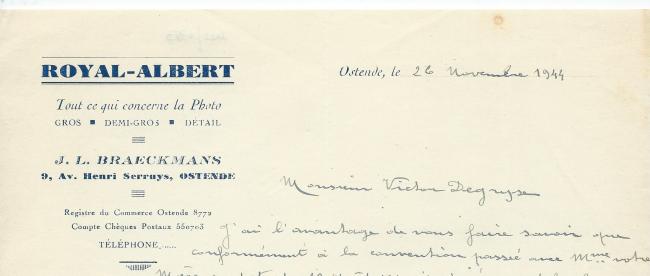 ROYAL-ALBERT
Tout ce qui concerne la Photo
GROS ■ DEMI-GROS ■ DETAIL
J. L. BRAECKMANS
9, Av. Henri Serruys, OSTENDE
Registre du Commerce Ostende 8772
Compte Chèques Postaux 550703
TÉLÉPHONE ......
Ostende, le 26 Novembre 1944
Monsieur Victor Degryse
J'ai l'avantage de vous faire savoir que
conformément à la convention passée avec Mme votre